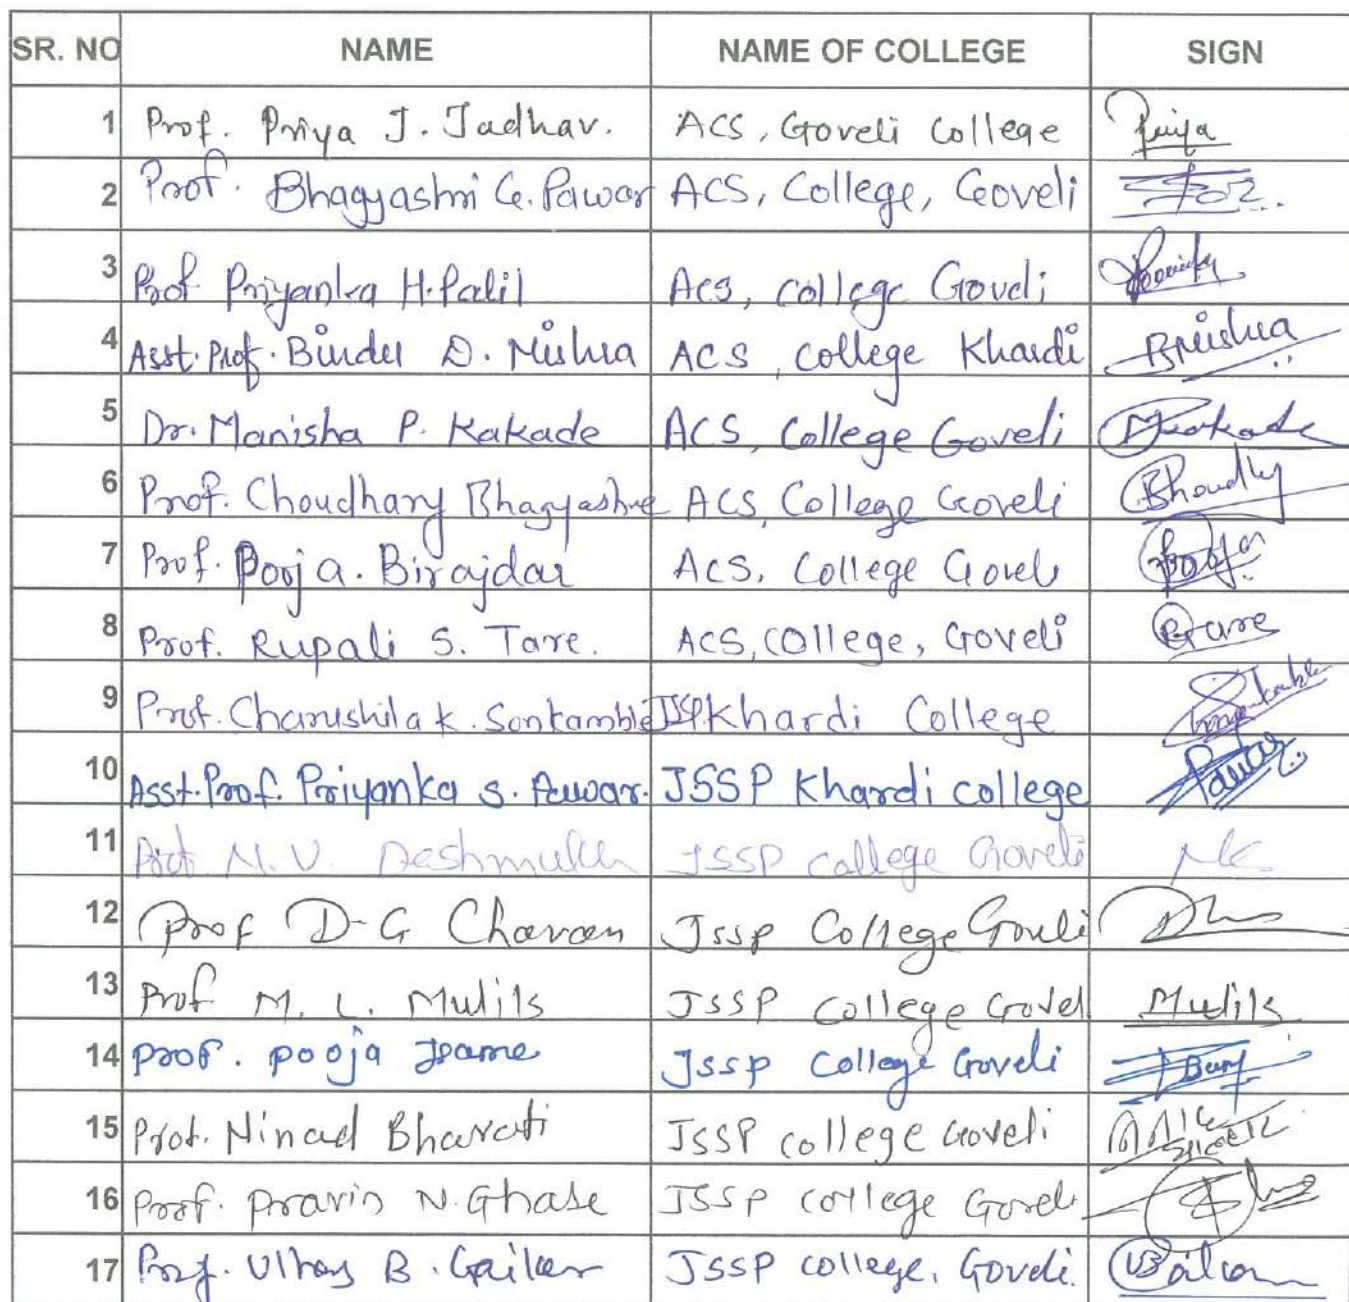 SR. NO NAME NAME OF COLLEGE SIGN
1 Prof. Priya J. Jadhav. ACS, Goveli College Priya
2 Prof. Bhagyashri G. Pawar ACS, College, Goveli
3 Prof Priyanka H. Patil Acs, college Goveli
4 Asst. Prof. Bindu D. Mishra ACS, college Khardi BMishra
5 Dr. Manisha P. Kakade ACS, College Goveli
6 Prof. Choudhary Bhagyashree ACS, College Goveli
7 Prof. Pooja. Birajdar ACS, College Goveli Pooja
8 Prof. Rupali S. Tare. ACS, College, Goveli
9 Prof. Charushila K. Sonkamble JSSP Khardi College
10 Asst. Prof. Priyanka S. Pawar. JSSP Khardi college Pawar
11 Prof N. V. Deshmukh JSSP college Goveli
12 Prof D-G Chavan Jssp College Goveli
13 Prof M. L. Mulik JSSP college Govel Mulik
14 Prof. Pooja JSSP College Goveli
15 Prof. Ninad Bharati JSSP college Goveli
16 Prof. Pravin N. Ghase JSSP college Goveli
17 Prof. Ulhas B. Gaikar JSSP college, Goveli.